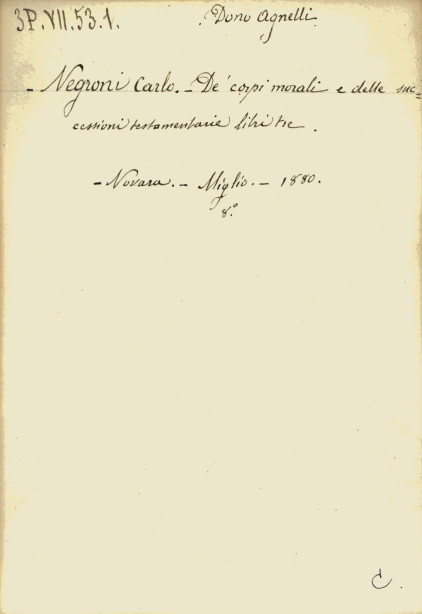 3P.VII.53.1.
Dono Agnelli.
- Negroni Carlo. - De' corpi morali e delle suc=
cessioni testamentarie libri tre.
- Novara. - Miglio. - 1880.
8.°
C.